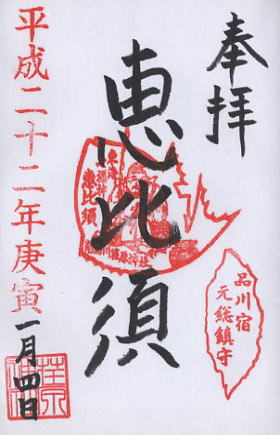 奉拝
恵比須
恵比須
品川宿
元総鎮守
平成二十二年庚寅
一月四日